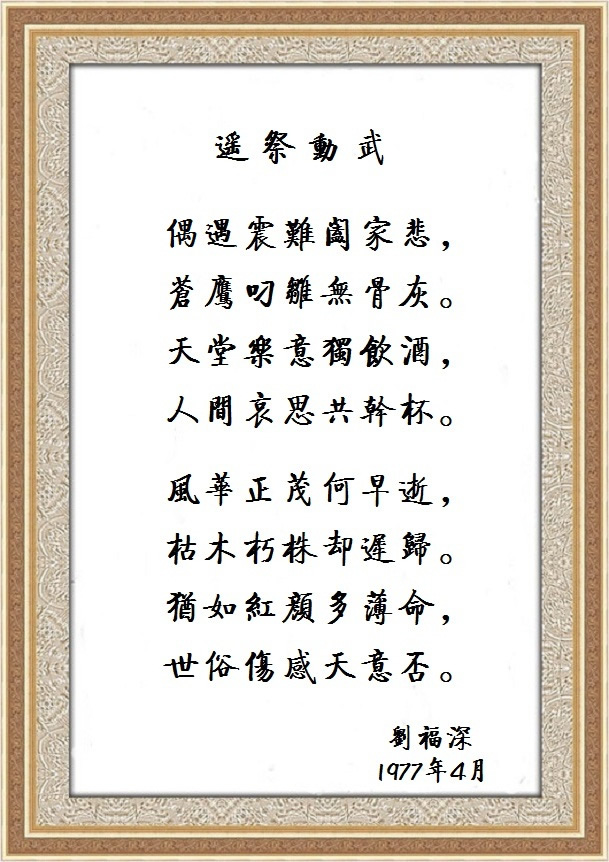 遥祭動武
偶遇震難闔家悲，
蒼鷹叼雛無骨灰。
天堂樂意獨飲酒，
人間哀思共幹杯。
風華正茂何早逝，
枯木朽株却遲歸。
猶如紅顔多薄命，
世俗傷感天意否。
劉福深
1977年4月